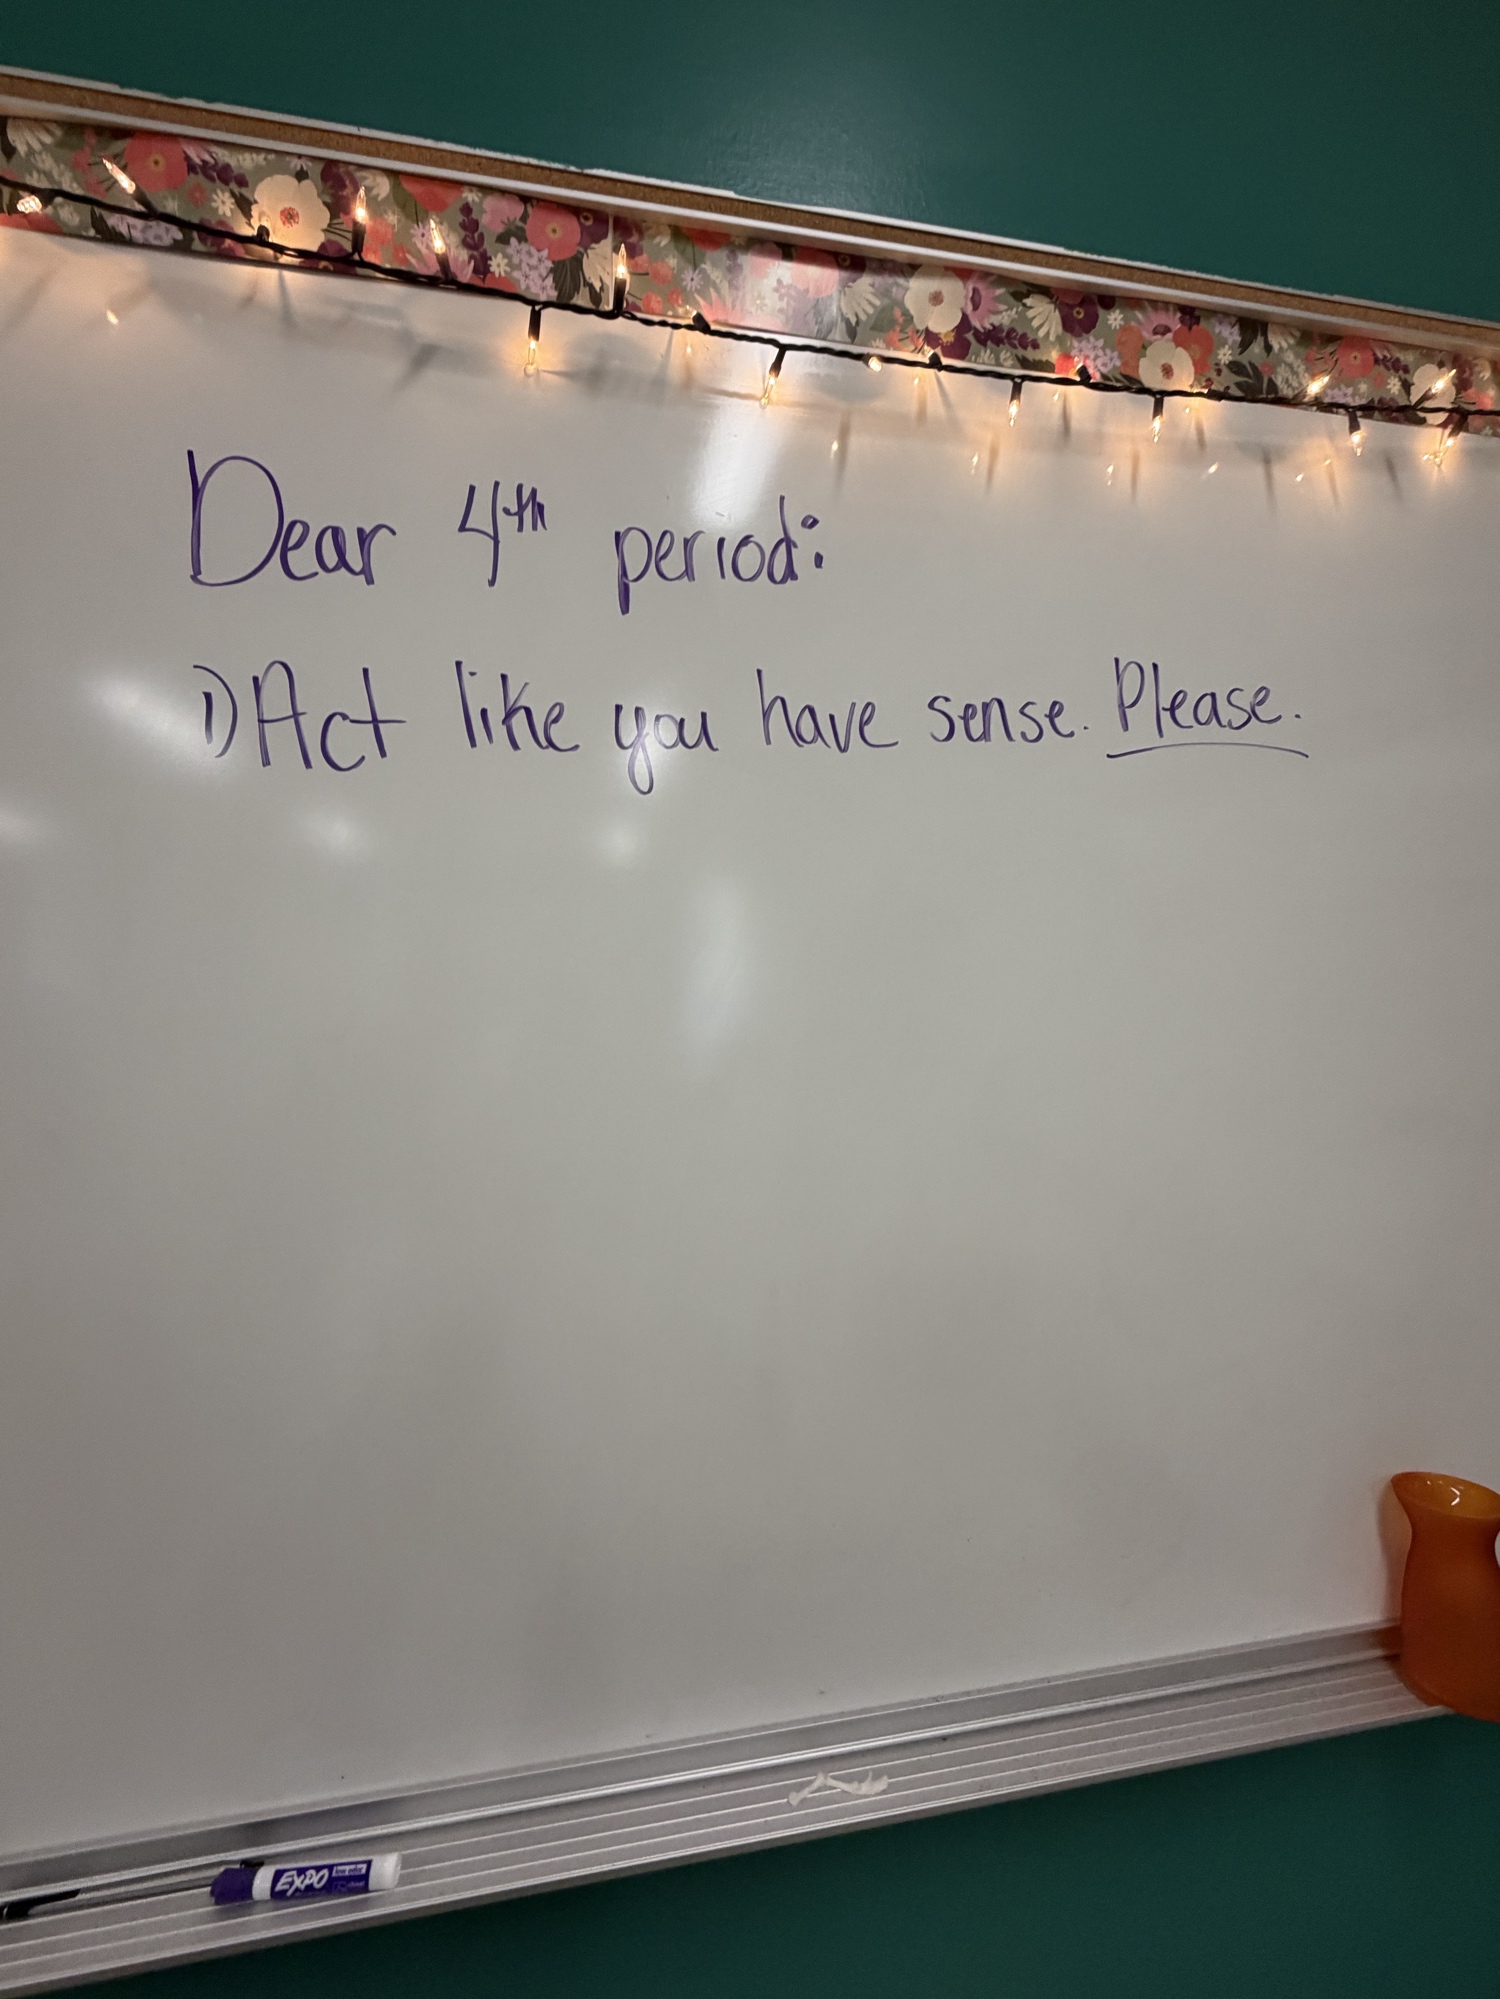 Dear 4th period:
1) Act like you have sense. Please.
EXPO
low odor